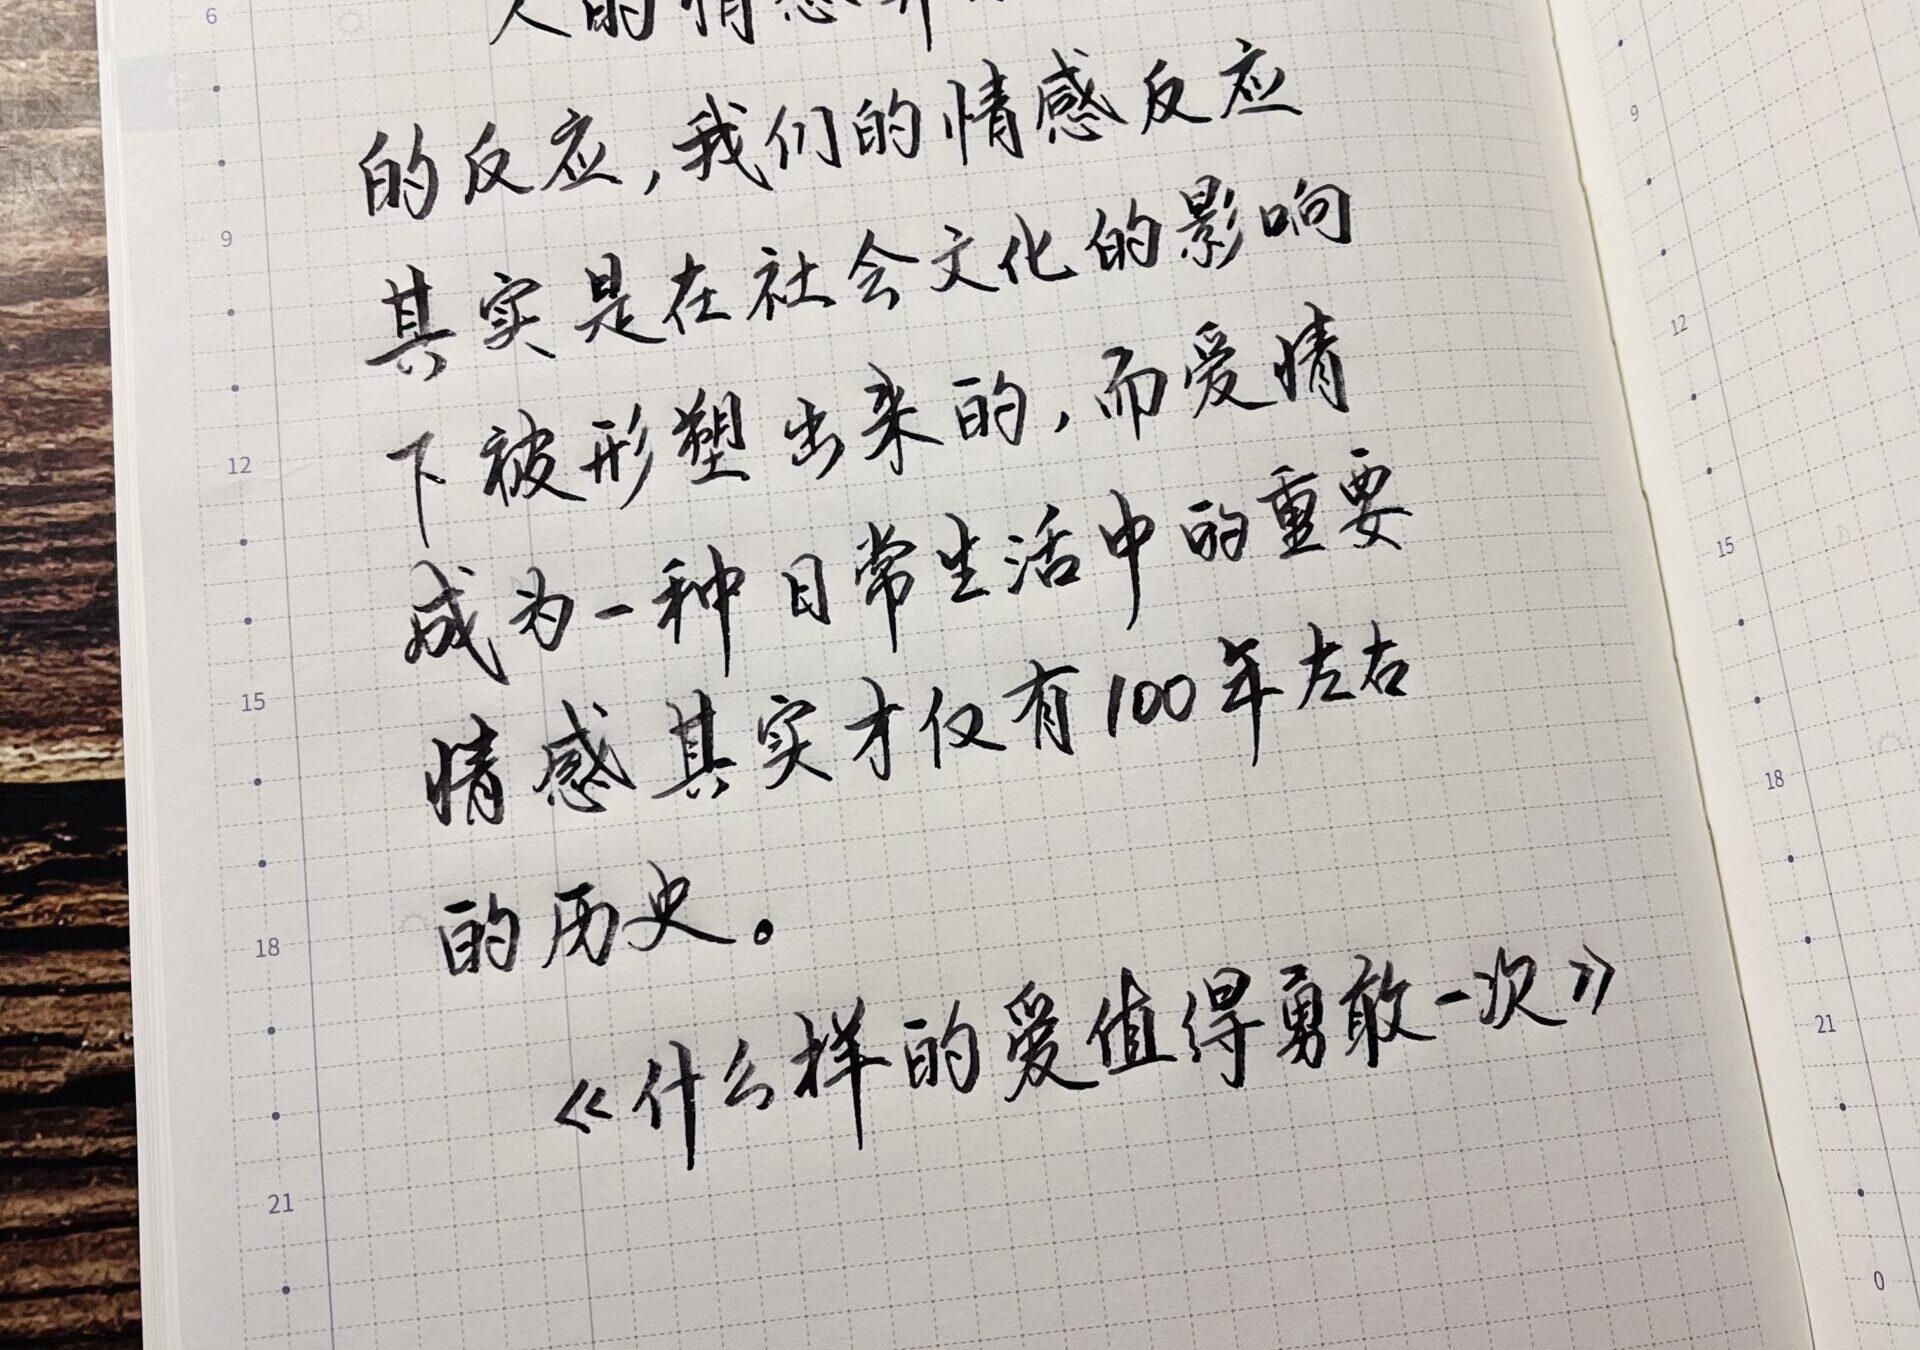 人的情感
的反应，我们的情感反应
其实是在社会文化的影响
下被形塑出来的，而爱情
成为一种日常生活中的重要
情感其实才仅有100年左右
的历史。
《什么样的爱值得勇敢一次》
6
9
12
15
18
21
9
12
15
18
21
0